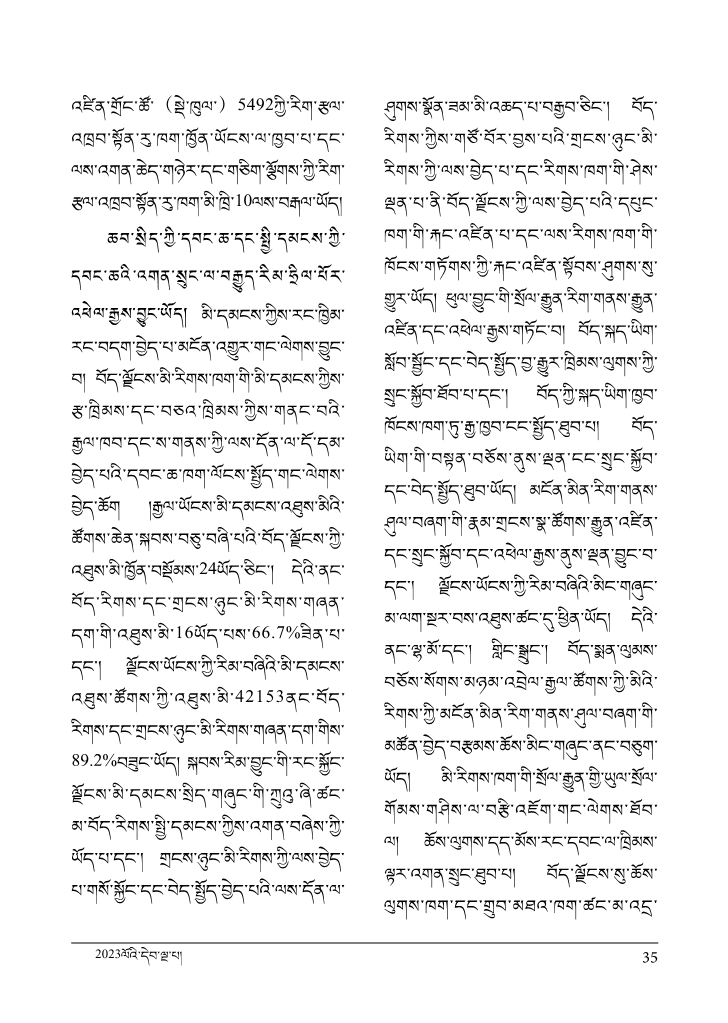 འཛིན་གྲོང་ཚོ་（སྡེ་ཁུལ་）5492ཀྱི་རིག་རྩལ་
འཁྲབ་སྟོན་རུ་ཁག་ཁྱོན་ཡོངས་ལ་ཁྱབ་པ་དང་
ལས་འགན་ཆེད་གཉེར་དང་གཅིག་ལྕོགས་ཀྱི་རིག་
རྩལ་འཁྲབ་སྟོན་རུ་ཁག་མི་ཁྲི་10ལས་བརྒལ་ཡོད།
ཆབ་སྲིད་ཀྱི་དབང་ཆ་དང་སྤྱི་དམངས་ཀྱི་
དབང་ཆའི་འགན་སྲུང་ལ་བརྒྱུད་རིམ་ཧྲིལ་པོར་
འཕེལ་རྒྱས་བྱུང་ཡོད། མི་དམངས་ཀྱིས་རང་ཁྱིམ་
རང་བདག་བྱེད་པ་མངོན་འགྱུར་གང་ལེགས་བྱུང་
བ། བོད་ལྗོངས་མི་རིགས་ཁག་གི་མི་དམངས་ཀྱིས་
རྩ་ཁྲིམས་དང་བཅའ་ཁྲིམས་ཀྱིས་གནང་བའི་
རྒྱལ་ཁབ་དང་ས་གནས་ཀྱི་ལས་དོན་ལ་དོ་དམ་
བྱེད་པའི་དབང་ཆ་ཁག་ལོངས་སྤྱོད་གང་ལེགས་
བྱེད་ཆོག །རྒྱལ་ཡོངས་མི་དམངས་འཐུས་མིའི་
ཚོགས་ཆེན་སྐབས་བཅུ་བཞི་པའི་བོད་ལྗོངས་ཀྱི་
འཐུས་མི་ཁྱོན་བསྡོམས་24ཡོད་ཅིང་། དེའི་ནང་
བོད་རིགས་དང་གྲངས་ཉུང་མི་རིགས་གཞན་
དག་གི་འཐུས་མི་16ཡོད་པས་66.7%ཟིན་པ་
དང་། ལྗོངས་ཡོངས་ཀྱི་རིམ་བཞིའི་མི་དམངས་
འཐུས་ཚོགས་ཀྱི་འཐུས་མི་42153ནང་བོད་
རིགས་དང་གྲངས་ཉུང་མི་རིགས་གཞན་དག་གིས་
89.2%བཟུང་ཡོད། སྐབས་རིམ་བྱུང་གི་རང་སྐྱོང་
ལྗོངས་མི་དམངས་སྲིད་གཞུང་གི་ཀྲུའུ་ཞི་ཚང་
མ་བོད་རིགས་སྤྱི་དམངས་ཀྱིས་འགན་བཞེས་ཀྱི་
ཡོད་པ་དང་། གྲངས་ཉུང་མི་རིགས་ཀྱི་ལས་བྱེད་
པ་གསོ་སྐྱོང་དང་བེད་སྤྱོད་བྱེད་པའི་ལས་དོན་ལ་
ཤུགས་སྣོན་ཟམ་མི་འཆད་པ་བརྒྱབ་ཅིང་། བོད་
རིགས་ཀྱིས་གཙོ་བོར་བྱས་པའི་གྲངས་ཉུང་མི་
རིགས་ཀྱི་ལས་བྱེད་པ་དང་རིགས་ཁག་གི་ཤེས་
ལྡན་པ་ནི་བོད་ལྗོངས་ཀྱི་ལས་བྱེད་པའི་དཔུང་
ཁག་གི་རྐང་འཛིན་པ་དང་ལས་རིགས་ཁག་གི་
ཁོངས་གཏོགས་ཀྱི་རྐང་འཛིན་སྟོབས་ཤུགས་སུ་
གྱུར་ཡོད། ཕུལ་བྱུང་གི་སྲོལ་རྒྱུན་རིག་གནས་རྒྱུན་
འཛིན་དང་འཕེལ་རྒྱས་གཏོང་བ། བོད་སྐད་ཡིག་
སློབ་སྦྱོང་དང་བེད་སྤྱོད་བྱ་རྒྱུར་ཁྲིམས་ལུགས་ཀྱི་
སྲུང་སྐྱོབ་ཐོབ་པ་དང་། བོད་ཀྱི་སྐད་ཡིག་ཁྱབ་
ཁོངས་ཁག་ཏུ་རྒྱ་ཁྱབ་ངང་སྤྱོད་ཐུབ་པ། བོད་
ཡིག་གི་བསྟན་བཅོས་ནུས་ལྡན་ངང་སྲུང་སྐྱོབ་
དང་བེད་སྤྱོད་ཐུབ་ཡོད། མངོན་མིན་རིག་གནས་
ཤུལ་བཞག་གི་རྣམ་གྲངས་སྣ་ཚོགས་རྒྱུན་འཛིན་
དང་སྲུང་སྐྱོབ་དང་འཕེལ་རྒྱས་ནུས་ལྡན་བྱུང་བ་
དང་། ལྗོངས་ཡོངས་ཀྱི་རིམ་བཞིའི་མིང་གཞུང་
མ་ལག་སྔར་བས་འཐུས་ཚང་དུ་ཕྱིན་ཡོད། དེའི་
ནང་ལྷ་མོ་དང་། གླིང་སྒྲུང་། བོད་སྨན་ལུམས་
བཅོས་སོགས་མཉམ་འབྲེལ་རྒྱལ་ཚོགས་ཀྱི་མིའི་
རིགས་ཀྱི་མངོན་མིན་རིག་གནས་ཤུལ་བཞག་གི་
མཚོན་བྱེད་བརྩམས་ཆོས་མིང་གཞུང་ནང་བཅུག་
ཡོད། མི་རིགས་ཁག་གི་སྲོལ་རྒྱུན་གྱི་ཡུལ་སྲོལ་
གོམས་གཤིས་ལ་བརྩི་འཇོག་གང་ལེགས་ཐོབ་
ལ། ཆོས་ལུགས་དད་མོས་རང་དབང་ལ་ཁྲིམས་
ལྟར་འགན་སྲུང་ཐུབ་པ། བོད་ལྗོངས་སུ་ཆོས་
ལུགས་ཁག་དང་གྲུབ་མཐའ་ཁག་ཚང་མ་འདྲ་
2023ལོའི་དེབ་ལྔ་པ།
35